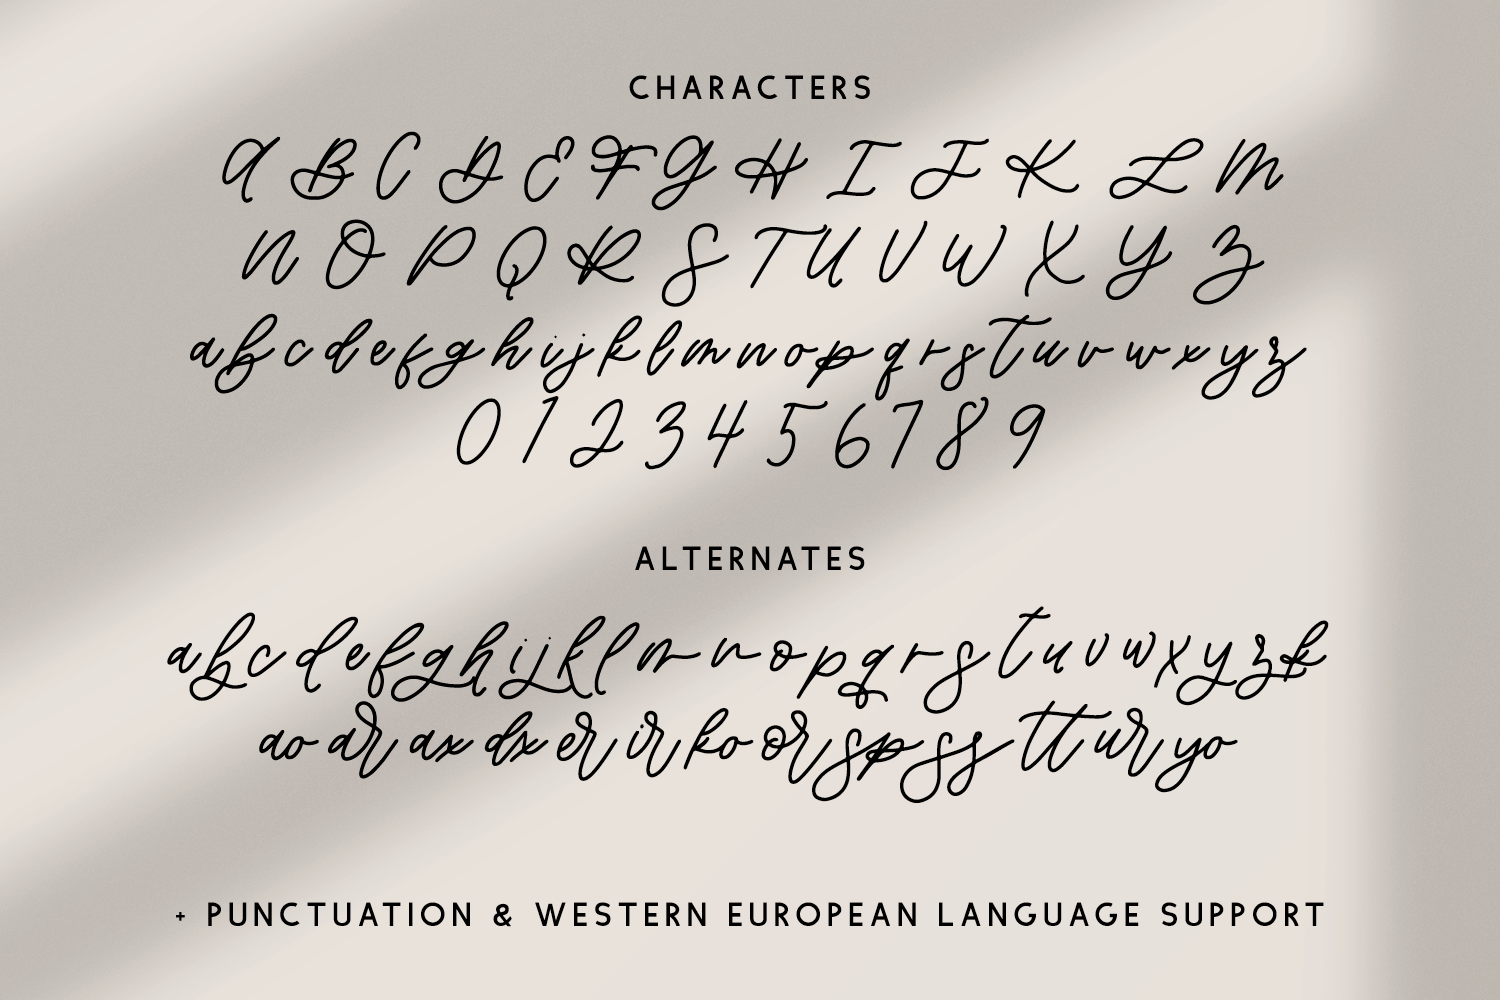 CHARACTERS
A B C D E F G H I J K L M
N O P Q R S T U V W X Y Z
a b c d e f g h i j k l m n o p q r s t u v w x y z
0 1 2 3 4 5 6 7 8 9
ALTERNATES
a b c d e f g h i j k l m n o p q r s t u v w x y z k
ao ar ax dx er ir ko or sp ss tt ur yo
+ PUNCTUATION & WESTERN EUROPEAN LANGUAGE SUPPORT